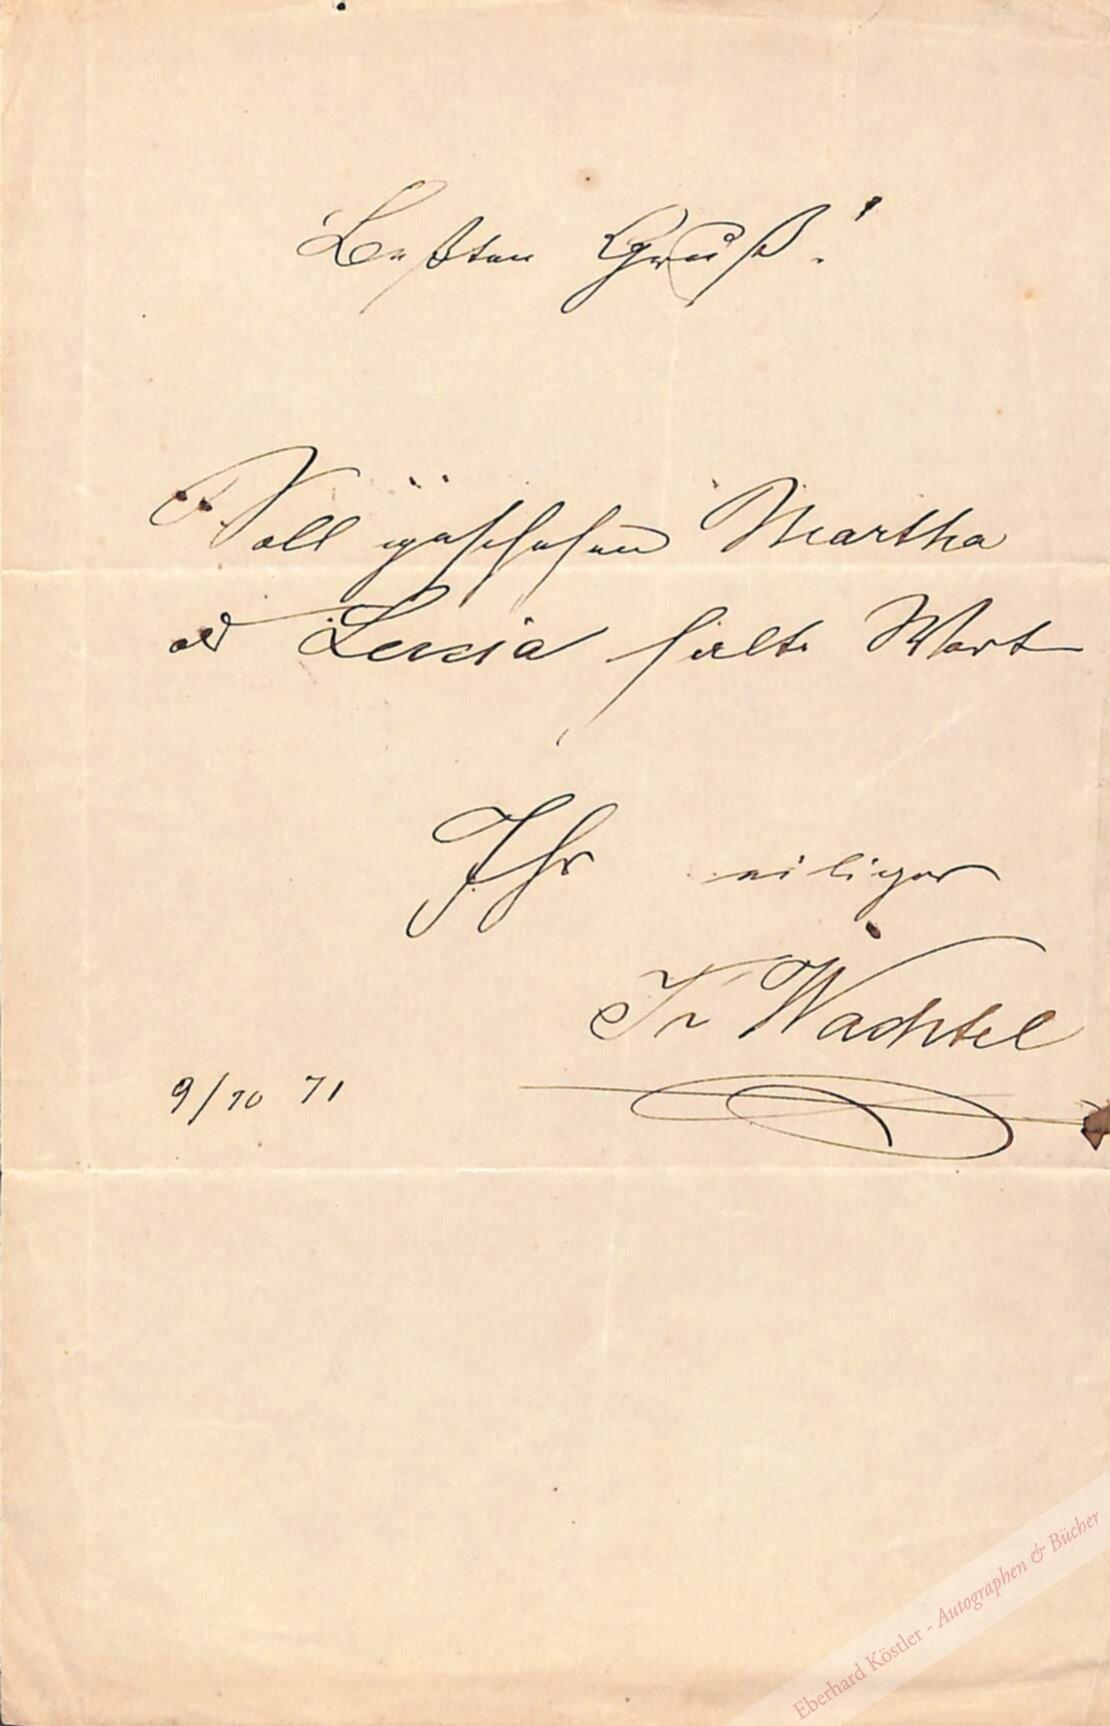 Beßten Gruß!
Soll geschehen Martha
od Lucia halte Wort
Ihr eiliger
Th Wachtel
9/10 71
Eberhard Köstler - Autographen & Bücher